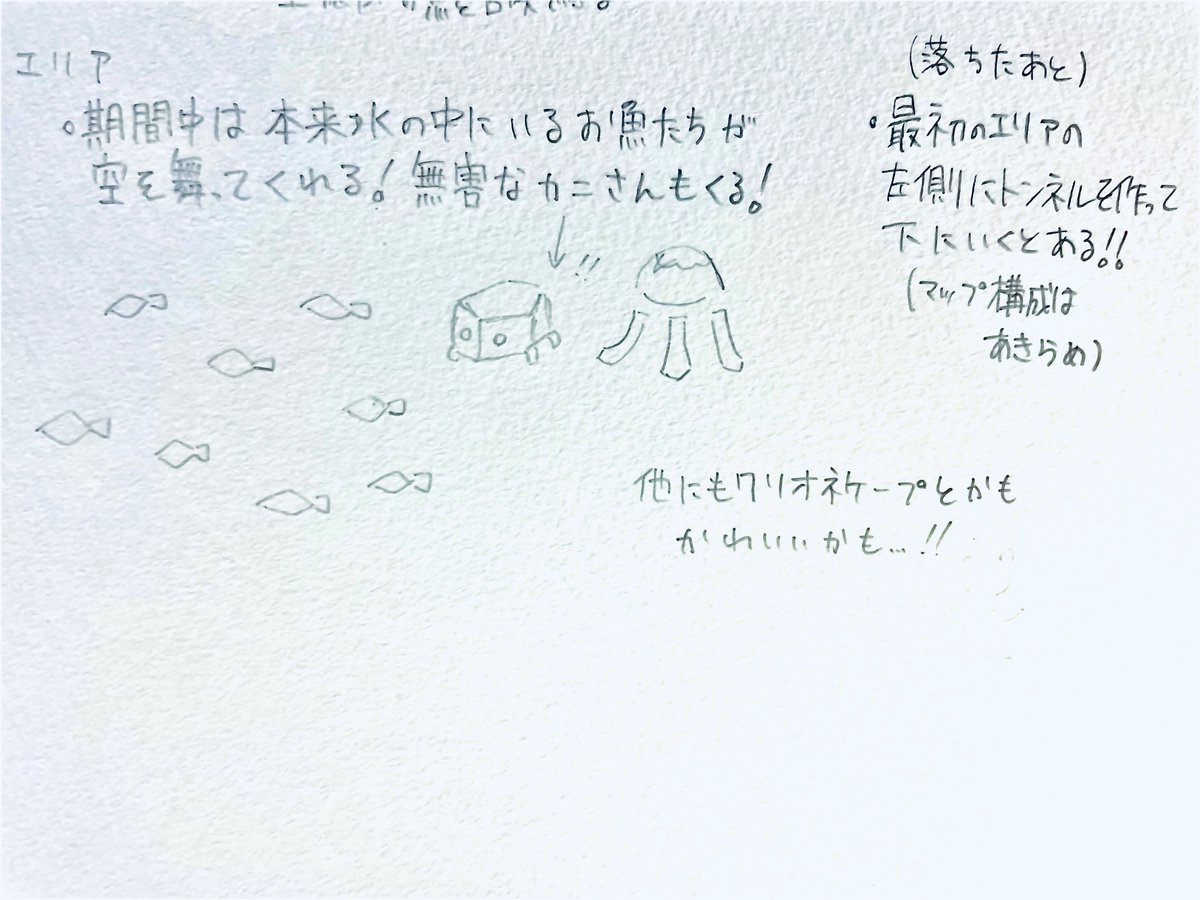 エリア
。期間中は本来水の中にいるお魚たちが
空を舞ってくれる!無害なカニさんもくる!
!!
(落ちたあと)
・最初のエリアの
左側にトンネルを作って
下にいくとある!!
(マップ構成は
あきらめ)
他にもクリオネケープとかも
かわいいかも...!!